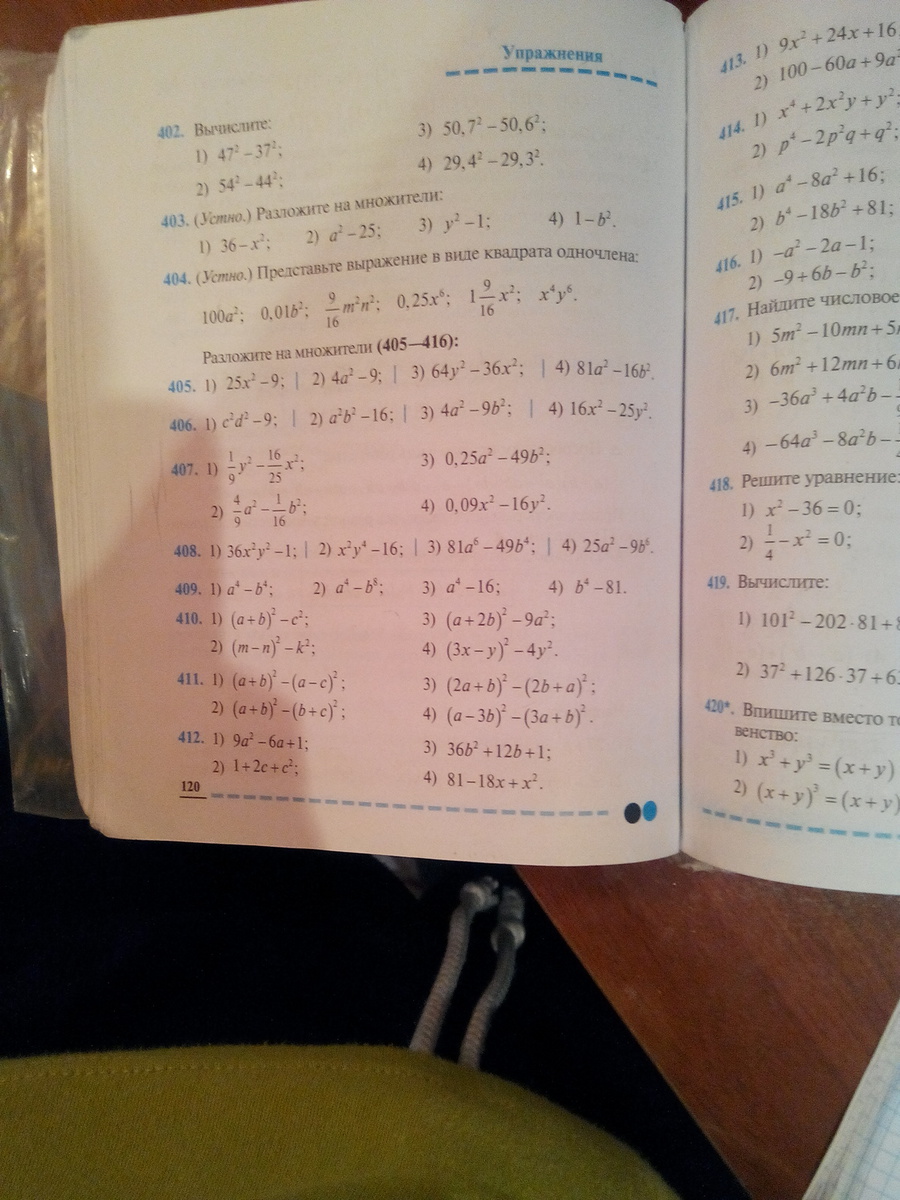 Упражнения
402. Вычислите:
1) 47² – 37²; 3) 50,7² – 50,6²;
2) 54² – 44²; 4) 29,4² – 29,3².
403. (Устно.) Разложите на множители:
1) 36 – x²; 2) a² – 25; 3) y² – 1; 4) 1 – b².
404. (Устно.) Представьте выражение в виде квадрата одночлена:
100a²; 0,01b²; 9/16 m²n²; 0,25x⁶; 1 9/16 x²; x⁴y⁶.
Разложите на множители (405—416):
405. 1) 25x² – 9; | 2) 4a² – 9; | 3) 64y² – 36x²; | 4) 81a² – 16b².
406. 1) c²d² – 9; | 2) a²b² – 16; | 3) 4a² – 9b²; | 4) 16x² – 25y².
407. 1) 1/9 y² – 16/25 x²; 3) 0,25a² – 49b²;
2) 4/9 a² – 1/16 b²; 4) 0,09x² – 16y².
408. 1) 36x²y² – 1; | 2) x²y⁴ – 16; | 3) 81a⁶ – 49b⁴; | 4) 25a² – 9b⁶.
409. 1) a⁴ – b⁴; 2) a⁴ – b⁸; 3) a⁴ – 16; 4) b⁴ – 81.
410. 1) (a + b)² – c²; 3) (a + 2b)² – 9a²;
2) (m – n)² – k²; 4) (3x – y)² – 4y².
411. 1) (a + b)² – (a – c)²; 3) (2a + b)² – (2b + a)²;
2) (a + b)² – (b + c)²; 4) (a – 3b)² – (3a + b)².
412. 1) 9a² – 6a + 1; 3) 36b² + 12b + 1;
2) 1 + 2c + c²; 4) 81 – 18x + x².
120
413. 1) 9x² + 24x + 16
2) 100 – 60a + 9a²
414. 1) x⁴ + 2x²y + y²;
2) p⁴ – 2p²q + q²;
415. 1) a⁴ – 8a² + 16;
2) b⁴ – 18b² + 81;
416. 1) –a² – 2a – 1;
2) –9 + 6b – b²;
417. Найдите числовое
1) 5m² – 10mn + 5
2) 6m² + 12mn + 6
3) –36a³ + 4a²b –
4) –64a³ – 8a²b –
418. Решите уравнение:
1) x² – 36 = 0;
2) 1/4 – x² = 0;
419. Вычислите:
1) 101² – 202 · 81 + 8
2) 37² + 126 · 37 + 6
420*. Впишите вместо
венство:
1) x³ + y³ = (x + y)
2) (x + y)³ = (x + y)